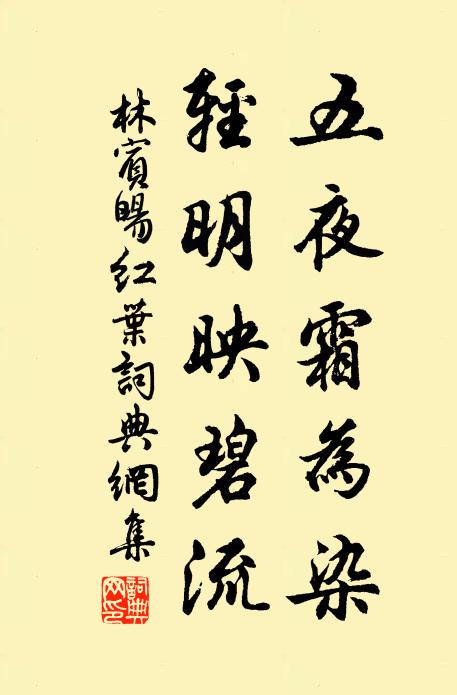 五夜霜為染
輕明映碧流
林賓暘紅葉詞典網集
詞典網印